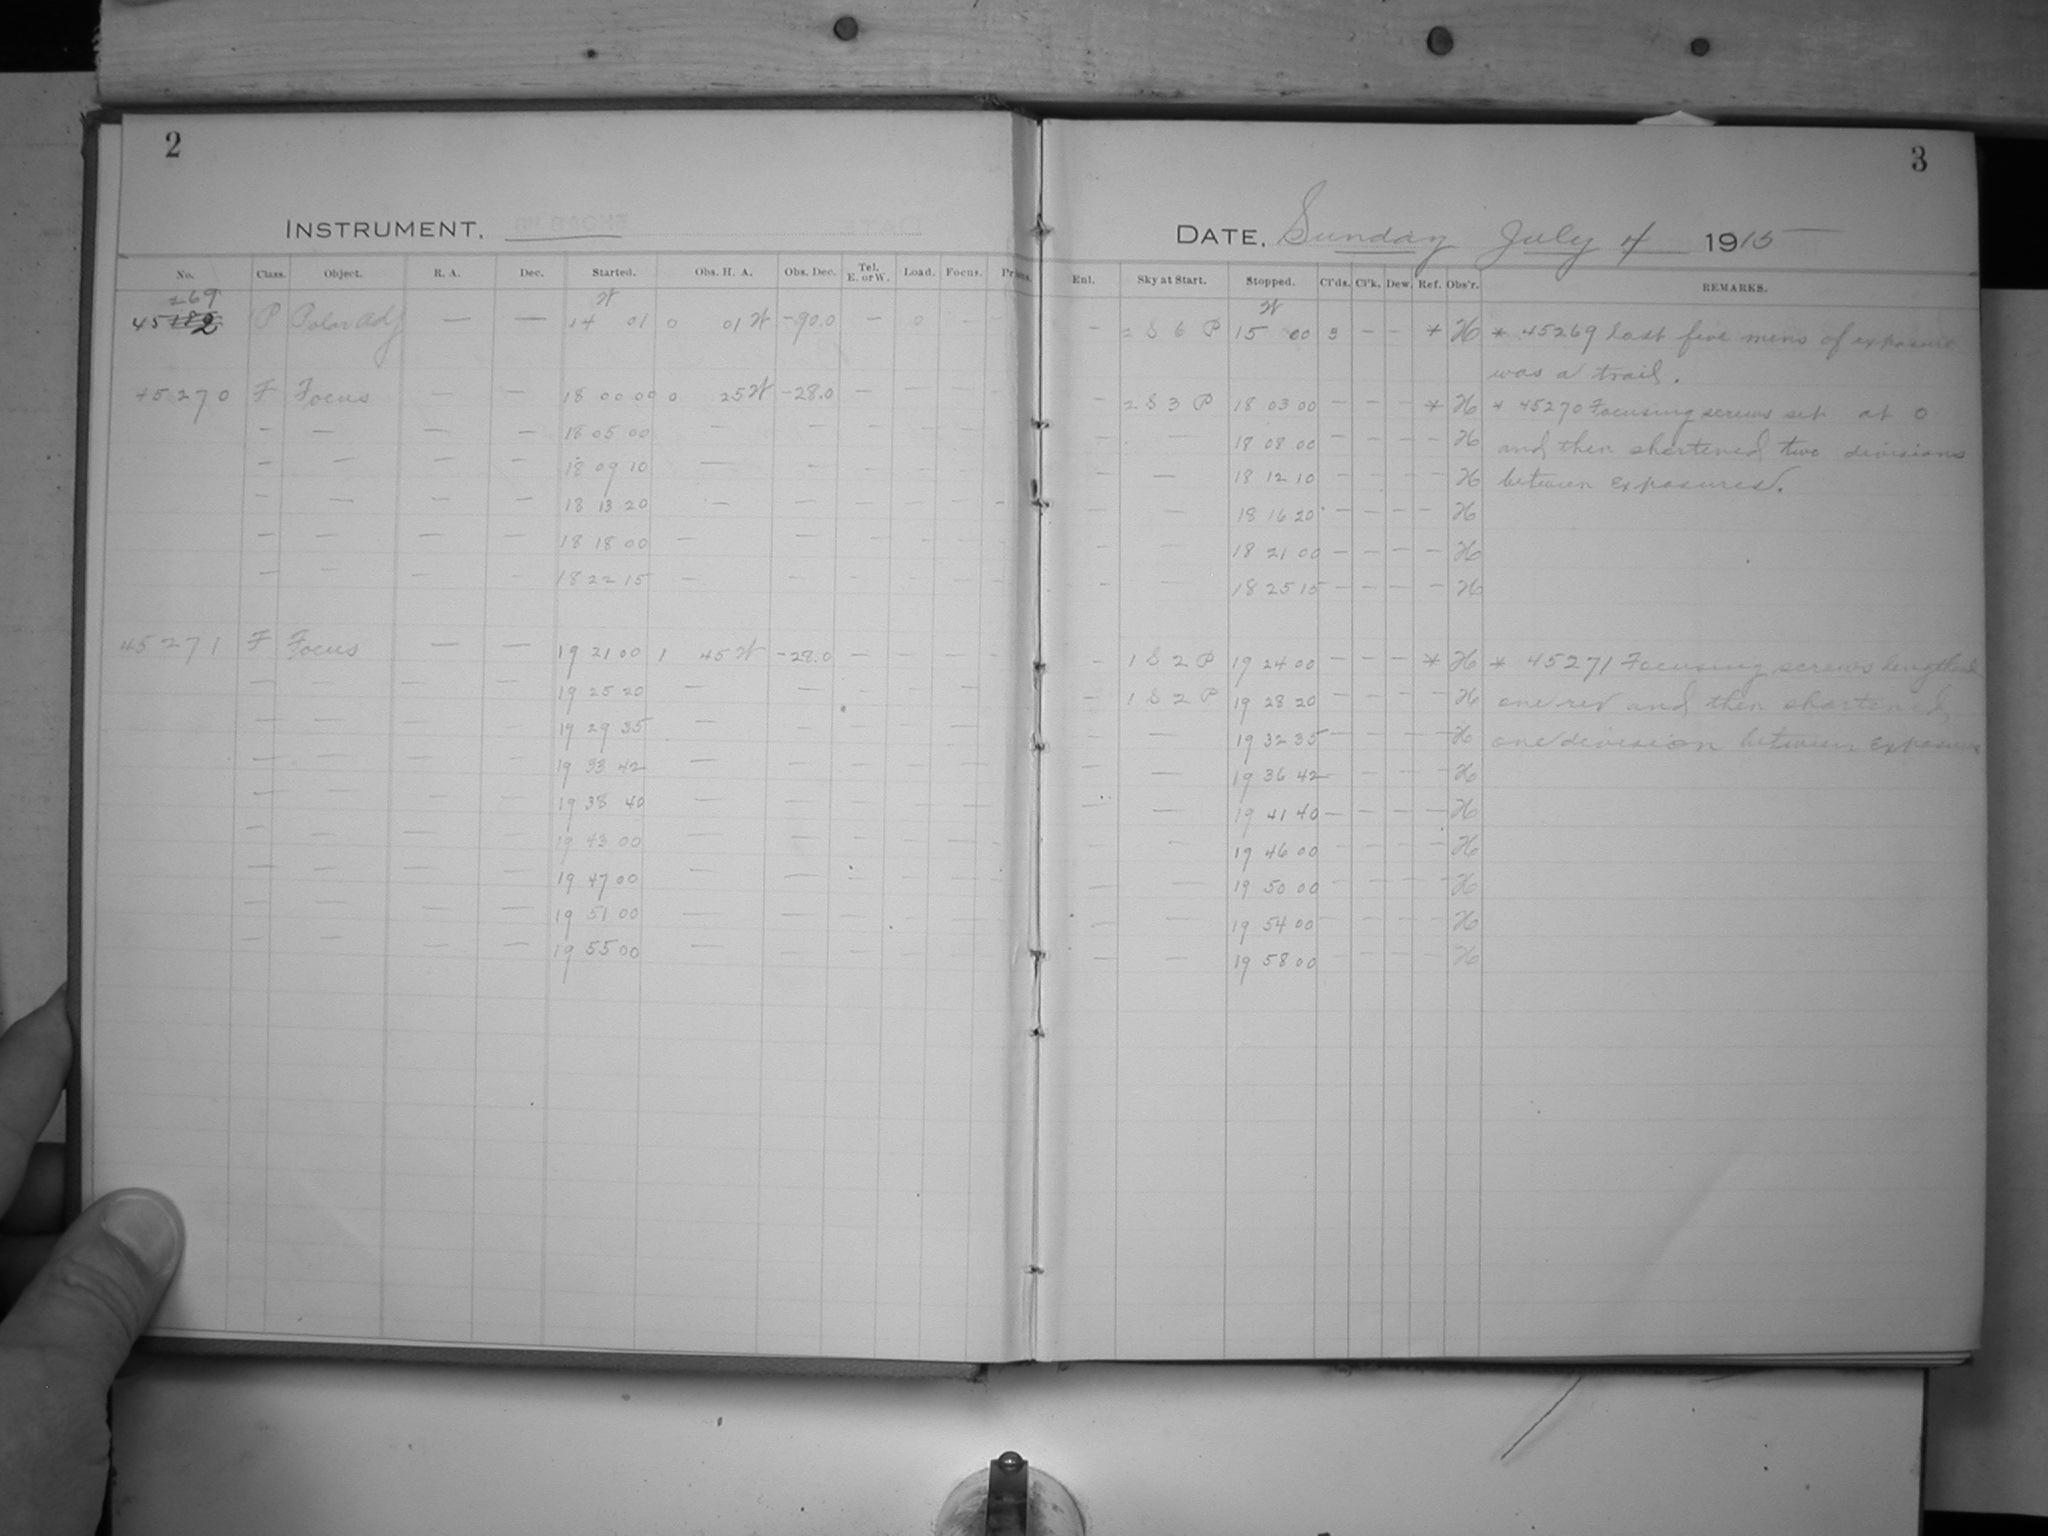 2
INSTRUMENT,
No. Class. Object. R. A. Dec. Started. Obs. H. A. Obs. Dec. Tel. E. or W. Load. Focus.
269
45 P Polar Adj — — 14 01 0 01 W -90.0 — 0 — —
45270 F Focus — — 18 00 00 0 25 W -28.0 — — — —
— — — — 18 05 00 — — — — — —
— — — — 18 09 10 — — — — — —
— — — — 18 13 20 — — — — — —
— — — — 18 18 00 — — — — — —
— — — — 18 22 15 — — — — — —
45271 F Focus — — 19 21 00 1 45 W -28.0 — — — —
— — — — 19 25 20 — — — — — —
— — — — 19 29 35 — — — — — —
— — — — 19 33 42 — — — — — —
— — — — 19 38 40 — — — — — —
— — — — 19 43 00 — — — — — —
— — — — 19 47 00 — — — — — —
— — — — 19 51 00 — — — — — —
— — — — 19 55 00 — — — — — —
3
DATE, Sunday July 4 1915
Enl. Sky at Start. Stopped. Cl'ds. Cl'k. Dew. Ref. Obs'r. REMARKS.
— 2 S 6 P 15 00 3 — — * H * 45269 Last five mins of exposure
was a trail.
— 2 S 3 P 18 03 00 — — — * H * 45270 Focusing screws set at 0
— — 18 08 00 — — — — H and then shortened two divisions
— — 18 12 10 — — — — H between exposures.
— — 18 16 20 — — — — H
— — 18 21 00 — — — — H
— — 18 25 15 — — — — H
— 1 S 2 P 19 24 00 — — — * H * 45271 Focusing screws
— 1 S 2 P 19 28 20 — — — — H one rev and then shortened
— — 19 32 35 — — — — H one division between exposures
— — 19 36 42 — — — — H
— — 19 41 40 — — — — H
— — 19 46 00 — — — — H
— — 19 50 00 — — — — H
— — 19 54 00 — — — — H
— — 19 58 00 — — — — H